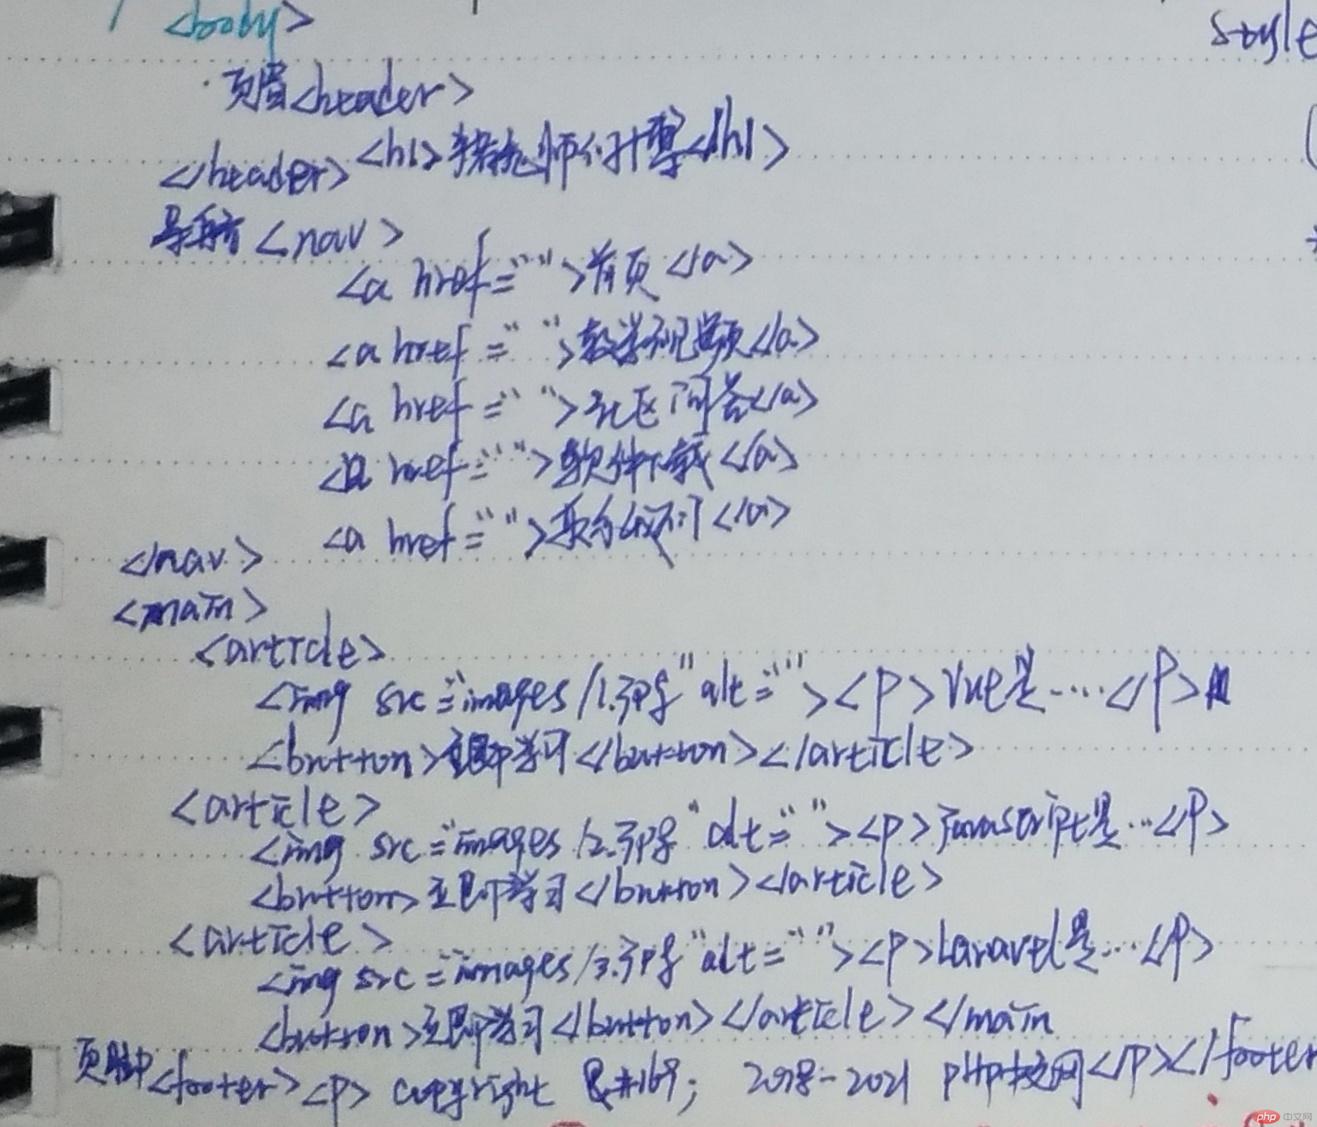 <body>
style
页眉<header>
<h1>朱老师的博客</h1>
</header>
导航<nav>
<a href="">首页</a>
<a href=" ">教学视频</a>
<a href=" ">社区问答</a>
<a href="">软件下载</a>
<a href="">联系我们</a>
</nav>
<main>
<article>
<img src="images/1.jpg" alt=""><p>Vue是....</p>
<button>立即学习</button></article>
<article>
<img src="images/2.jpg" alt=" "><p>javascript是...<p>
<button>立即学习</button></article>
<article>
<img src="images/3.jpg" alt=" "><p>Laravel是...</p>
<button>立即学习</button></article></main
页脚<footer><p> copyright &#169; 2018-2021 php中文网</p></footer
php 中文网